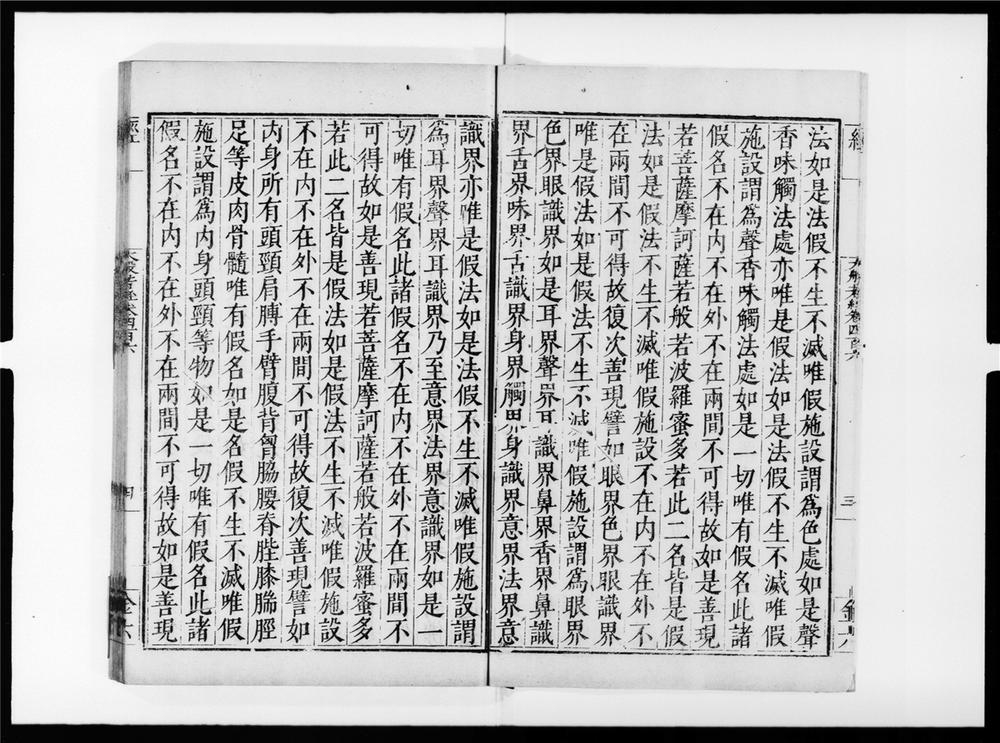 法如是法假不生不滅唯假施設謂爲色處如是聲
香味觸法處亦唯是假法如是法假不生不滅唯假
施設謂爲聲香味觸法處如是一切唯有假名此諸
假名不在內不在外不在兩間不可得故如是善現
若菩薩摩訶薩若般若波羅蜜多若此二名皆是假
法如是假法不生不滅唯假施設不在內不在外不
在兩間不可得故復次善現譬如眼界色界眼識界
唯是假法如是假法不生不滅唯假施設謂爲眼界
色界眼識界如是耳界聲界耳識界鼻界香界鼻識
界舌界味界舌識界身界觸界身識界意界法界意
識界亦唯是假法如是法假不生不滅唯假施設謂
爲耳界聲界耳識界乃至意界法界意識界如是一
切唯有假名此諸假名不在內不在外不在兩間不
可得故如是善現若菩薩摩訶薩若般若波羅蜜多
若此二名皆是假法如是假法不生不滅唯假施設
不在內不在外不在兩間不可得故復次善現譬如
內身所有頭頸肩膊手臂腹背胷脇腰脊髀膝腨脛
足等皮肉骨髓唯有假名如是名假不生不滅唯假
施設謂爲內身頭頸等物如是一切唯有假名此諸
假名不在內不在外不在兩間不可得故如是善現
經
三